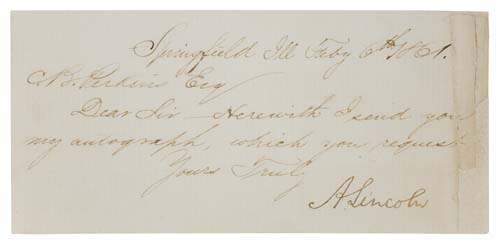 Springfield Ill Feby 6th 1861.
N B. Perkins Esq
Dear Sir — Herewith I send you
my autograph, which you request
Yours Truly
A Lincoln